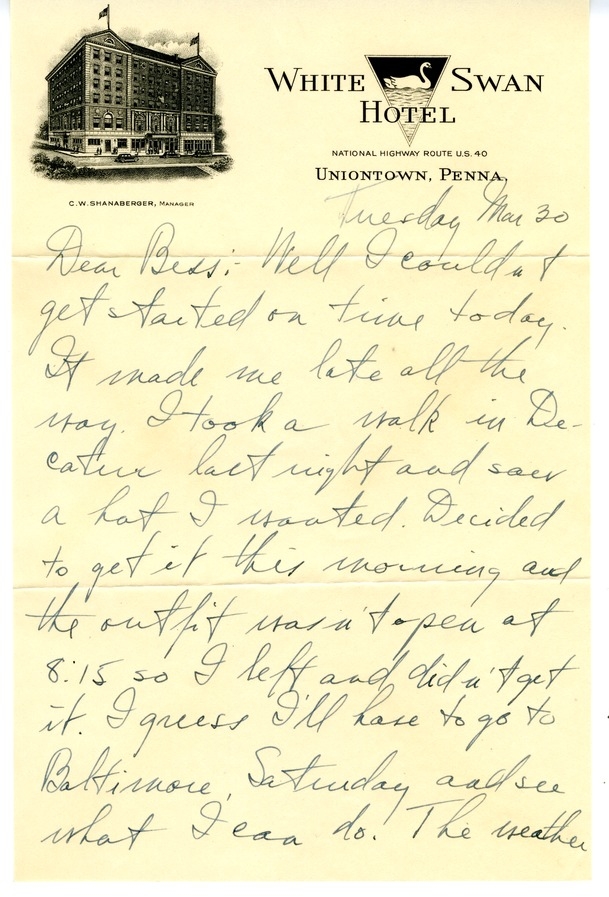 WHITE SWAN
HOTEL
NATIONAL HIGHWAY ROUTE U.S. 40
UNIONTOWN, PENNA.
C. W. SHANABERGER, MANAGER
Tuesday Mar 30
Dear Bess:- Well I couldn't
get started on time today.
It made me late all the
way. I took a walk in De-
catur last night and saw
a hat I wanted. Decided
to get it this morning and
the outfit wasn't open at
8:15 so I left and didn't get
it. I guess I'll have to go to
Baltimore, Saturday and see
what I can do. The weather